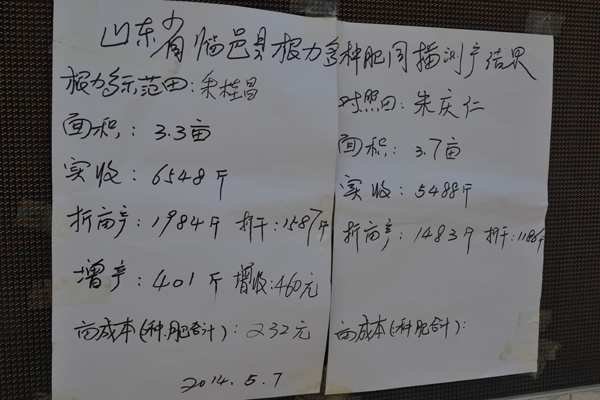 山东省临邑县根力多种肥同播测产结果
根力多示范田:朱桂昌
面积:3.3亩
实收:6548斤
折亩产:1984斤 折干:1587斤
增产:401斤 增收:460元
亩成本(种.肥合计):232元
2014.5.7
对照田:朱庆仁
面积:3.7亩
实收:5488斤
折亩产:1483斤 折干:1186斤
亩成本(种肥合计):